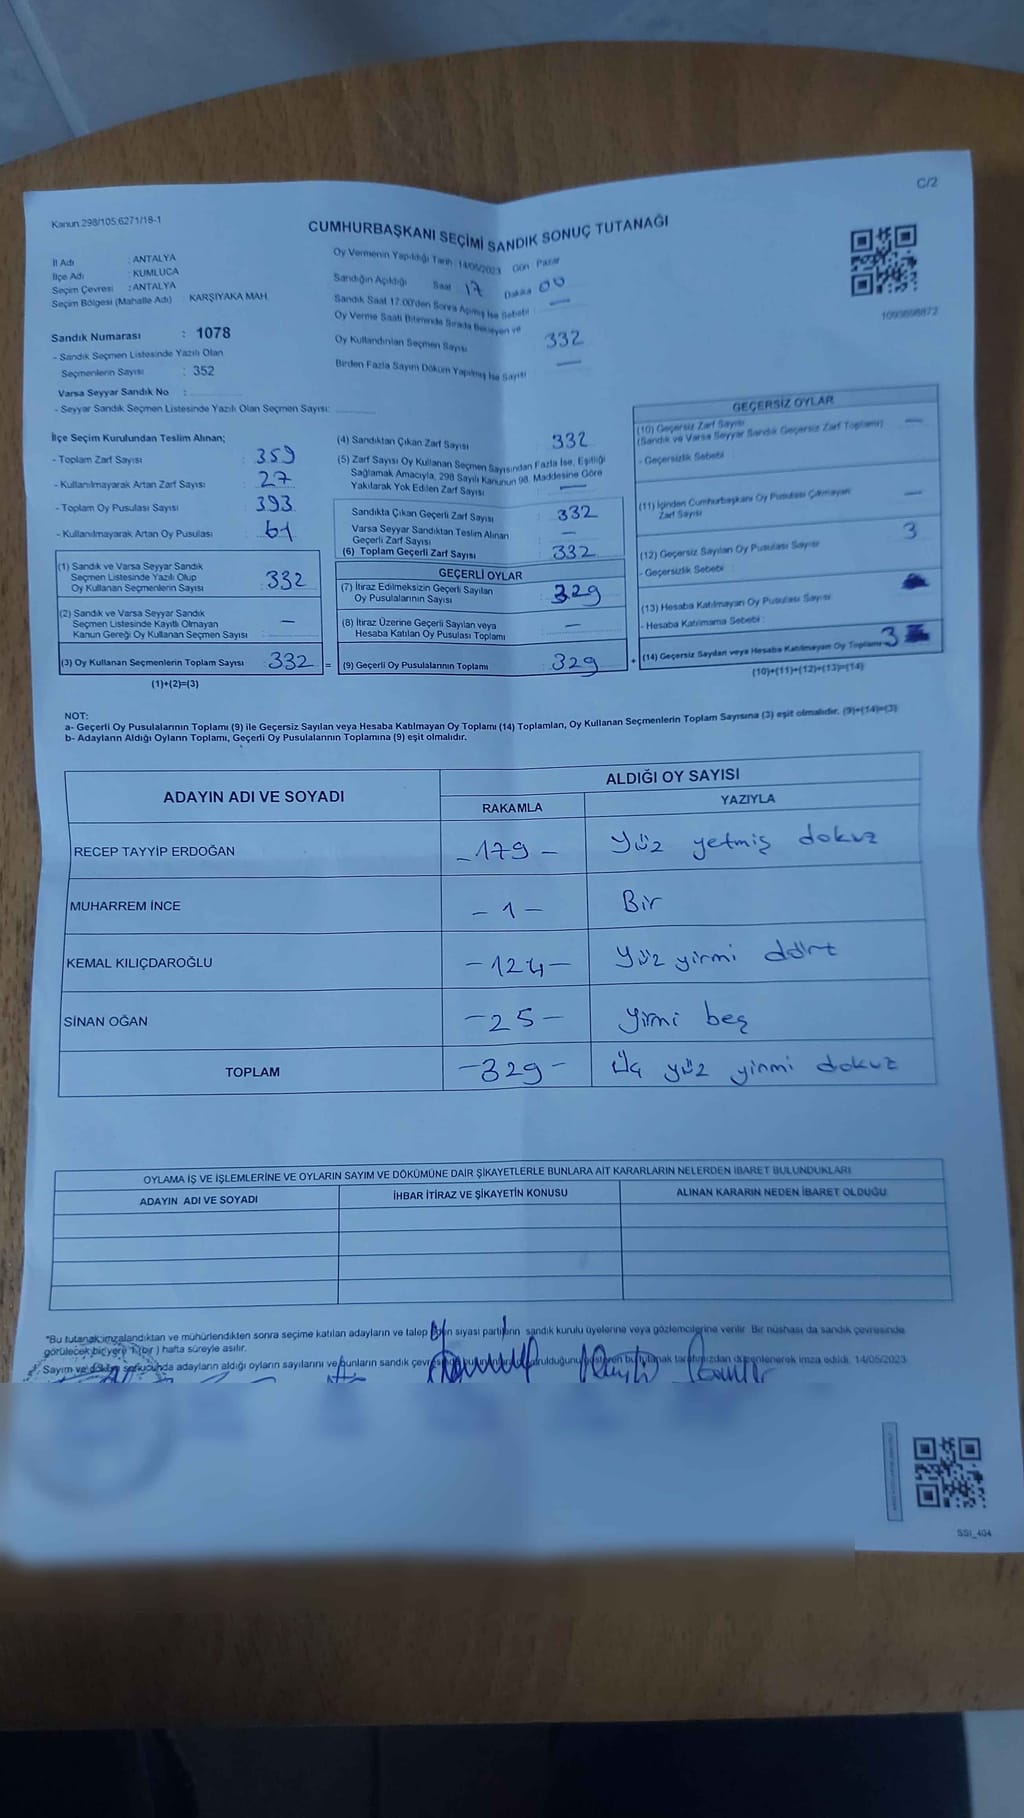 C/2
Kanun 298/105;6271/18-1
CUMHURBAŞKANI SEÇİMİ SANDIK SONUÇ TUTANAĞI
İl Adı : ANTALYA
İlçe Adı : KUMLUCA
Seçim Çevresi : ANTALYA
Seçim Bölgesi (Mahalle Adı) : KARŞIYAKA MAH.
Sandık Numarası : 1078
- Sandık Seçmen Listesinde Yazılı Olan
Seçmenlerin Sayısı : 352
Varsa Seyyar Sandık No :
- Seyyar Sandık Seçmen Listesinde Yazılı Olan Seçmen Sayısı:
Oy Vermenin Yapıldığı Tarih : 14/05/2023 Gün : Pazar
Sandığın Açıldığı Saat : 17 Dakika 00
Sandık Saat 17:00'den Sonra Açılmış İse Sebebi : —
Oy Verme Saati Bitiminde Sırada Bekleyen ve
Oy Kullandırılan Seçmen Sayısı 332
Birden Fazla Sayım Döküm Yapılmış İse Sayısı —
1093698872
İlçe Seçim Kurulundan Teslim Alınan;
- Toplam Zarf Sayısı : 359
- Kullanılmayarak Artan Zarf Sayısı : 27
- Toplam Oy Pusulası Sayısı : 393
- Kullanılmayarak Artan Oy Pusulası : 61
(1) Sandık ve Varsa Seyyar Sandık
Seçmen Listesinde Yazılı Olup
Oy Kullanan Seçmenlerin Sayısı : 332
(2) Sandık ve Varsa Seyyar Sandık
Seçmen Listesinde Kayıtlı Olmayan
Kanun Gereği Oy Kullanan Seçmen Sayısı : —
(3) Oy Kullanan Seçmenlerin Toplam Sayısı : 332 =
(1)+(2)=(3)
(4) Sandıktan Çıkan Zarf Sayısı : 332
(5) Zarf Sayısı Oy Kullanan Seçmen Sayısından Fazla İse, Eşitliği
Sağlamak Amacıyla, 298 Sayılı Kanunun 98. Maddesine Göre
Yakılarak Yok Edilen Zarf Sayısı : —
Sandıkta Çıkan Geçerli Zarf Sayısı : 332
Varsa Seyyar Sandıktan Teslim Alınan
Geçerli Zarf Sayısı : —
(6) Toplam Geçerli Zarf Sayısı : 332
GEÇERLİ OYLAR
(7) İtiraz Edilmeksizin Geçerli Sayılan
Oy Pusulalarının Sayısı : 329
(8) İtiraz Üzerine Geçerli Sayılan veya
Hesaba Katılan Oy Pusulası Toplamı : —
(9) Geçerli Oy Pusulalarının Toplamı : 329 +
GEÇERSİZ OYLAR
(10) Geçersiz Zarf Sayısı —
(Sandık ve Varsa Seyyar Sandık Geçersiz Zarf Toplamı)
- Geçersizlik Sebebi :
(11) İçinden Cumhurbaşkanı Oy Pusulası Çıkmayan —
Zarf Sayısı
(12) Geçersiz Sayılan Oy Pusulası Sayısı 3
- Geçersizlik Sebebi :
(13) Hesaba Katılmayan Oy Pusulası Sayısı
- Hesaba Katılmama Sebebi :
(14) Geçersiz Sayılan veya Hesaba Katılmayan Oy Toplamı 3
(10)+(11)+(12)+(13)=(14)
NOT:
a- Geçerli Oy Pusulalarının Toplamı (9) ile Geçersiz Sayılan veya Hesaba Katılmayan Oy Toplamı (14) Toplamları, Oy Kullanan Seçmenlerin Toplam Sayısına (3) eşit olmalıdır. (9)+(14)=(3)
b- Adayların Aldığı Oyların Toplamı, Geçerli Oy Pusulalarının Toplamına (9) eşit olmalıdır.
ADAYIN ADI VE SOYADI
ALDIĞI OY SAYISI
RAKAMLA YAZIYLA
RECEP TAYYİP ERDOĞAN – 179 – Yüz yetmiş dokuz
MUHARREM İNCE – 1 – Bir
KEMAL KILIÇDAROĞLU – 124 – Yüz yirmi dört
SİNAN OĞAN – 25 – Yirmi beş
TOPLAM – 329 – Üç yüz yirmi dokuz
OYLAMA İŞ VE İŞLEMLERİNE VE OYLARIN SAYIM VE DÖKÜMÜNE DAİR ŞİKAYETLERLE BUNLARA AİT KARARLARIN NELERDEN İBARET BULUNDUKLARI
ADAYIN ADI VE SOYADI İHBAR İTİRAZ VE ŞİKAYETİN KONUSU ALINAN KARARIN NEDEN İBARET OLDUĞU
*Bu tutanak imzalandıktan ve mühürlendikten sonra seçime katılan adayların ve talep eden siyasi partilerin sandık kurulu üyelerine veya gözlemcilerine verilir. Bir nüshası da sandık çevresinde
görülecek bir yere 1 (bir) hafta süreyle asılır.
Sayım ve döküm sonucunda adayların aldığı oyların sayılarını ve bunların sandık tutanak tarafımızdan düzenlenerek imza edildi. 14/05/2023
SSI_404